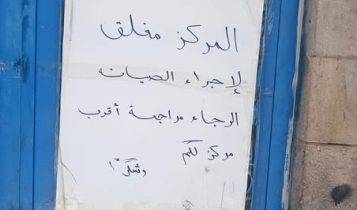 المركز مغلق
لإجراء الصيانة
الرجاء مراجعة أقرب
مركز لكم
وشكراً